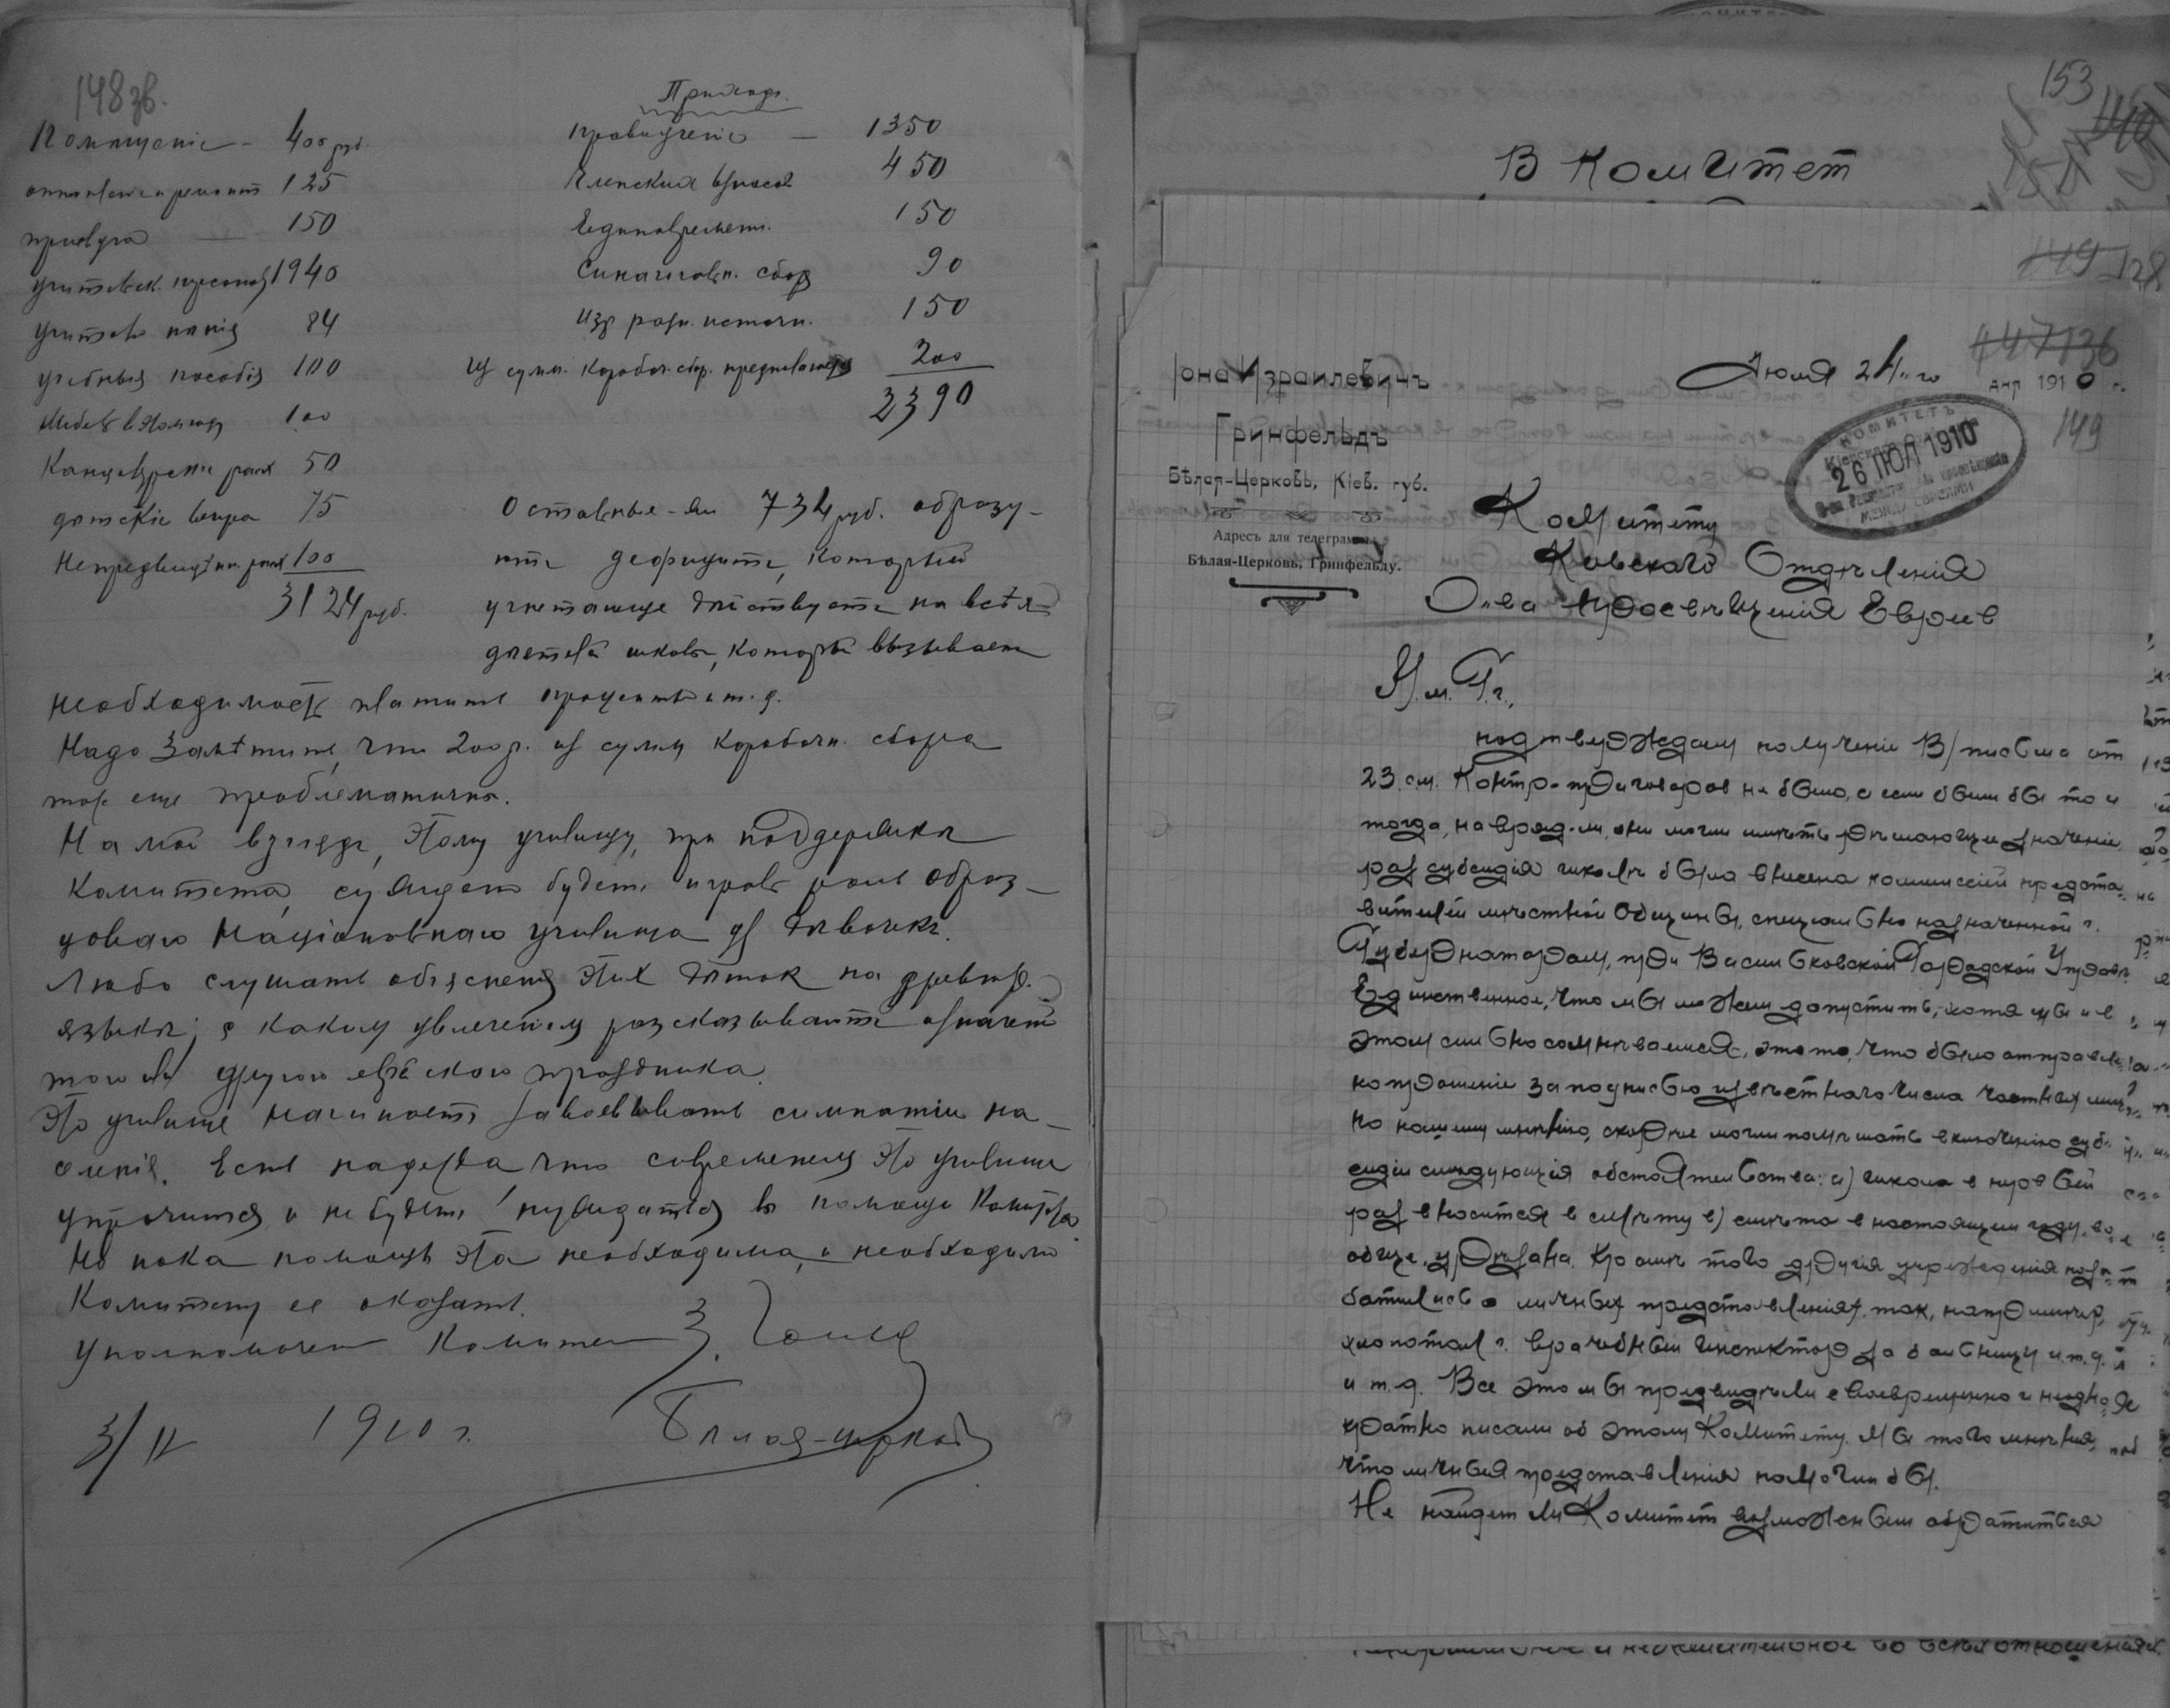 148 зв.
Помещение - 400 руб.
отопление и ремонт 125
прислуга — 150
учительск. персонал 1940
учитель пения 84
учебныя пособия 100
Мебель в школу 100
Канцелярские расх 50
детские вечера 75
Непредвиден. расх 100
3124 руб.
Приход.
правоучение — 1350
Членских взносов 450
Единовремен. 150
Синагогальн. сбор 90
Из разн. источн. 150
Из сумм. коробоч. сбор. предполагается 200
2390
Остальные-ли 734 руб. образу-
ютъ дефицитъ, который
угнетающе действуетъ на всѣхъ
деятелей школы, который вызываетъ
необходимость платить проценты и т. д.
Надо замѣтить, что 200 р. из суммы коробочн. сбора
тоже еще проблематичны.
На мой взглядъ, этому училищу, при поддержкѣ
Комитета, суждено будетъ играть роль образ-
цоваго Національнаго училища дл дѣвочекъ.
Любо слушать объясненія этих дѣток на древнеев.
языкѣ; с каким увлеченіем разсказываютъ о значеніи
того или другого еврейскаго праздника.
Это училище начинаетъ завоевывать симпатіи на-
селенія. Есть надежда что современем это училище
упрочится и не будетъ нуждаться въ помощи Комитета.
Но пока помощь эта необходима, и необходимо
Комитету ее оказать.
Уполномочен Комитет З.
3/II 1910 г. Бѣлая-Церковь
153
В Комитет
149 128
447 136
149
Іона Израилевичъ
Гринфельдъ
Бѣлая-Церковь, Кіев. губ.
Адресъ для телеграммъ:
Бѣлая-Церковь, Гринфельду.
Июля 24-го дня 1910 г.
КОМИТЕТЪ
26 ІЮЛ 1910
МЕЖДУ ЕВРЕЯМИ
Комитету
Киевского Отдѣленія
О-ва просвѣщенія Евреев
М. м. Г. г.,
подтверждаем полученіе В/письма от
23 см. Контр-приговоров не было, а если были бы то и
тогда, навряд-ли, они могли имѣть рѣшающее значеніе,
раз субсидія школѣ была внесена коммиссіей предста-
вителей мѣстной общины, спеціально назначенной г.
Губернатором, при Васильковской Городской Управѣ.
Единственное, что мы можем допустить, хотя мы и в
этом сильно сомнѣваемся, это то, что было отправлено
прошеніе за подписью извѣстнаго числа частных лиц.
По нашему мнѣнію, скорѣе могли помѣшать включенію суб-
сидіи слѣдующія обстоятельства: а) школа в первый
раз вносится в смѣту в) смѣта в настоящем году, во-
обще, урѣзана. Кромѣ того другія учрежденія поза-
ботились о личных представленіях, так, например,
хлопотал г. врачебный инспектор за больницу и.т.д.
и т.д. Все это мы предвидѣли своевременно и неодно-
кратно писали об этом Комитету. Мы того мнѣнія,
что личныя представленія помогли бы.
Не найдет ли Комитет возможным обратиться
во всѣх отношеніях